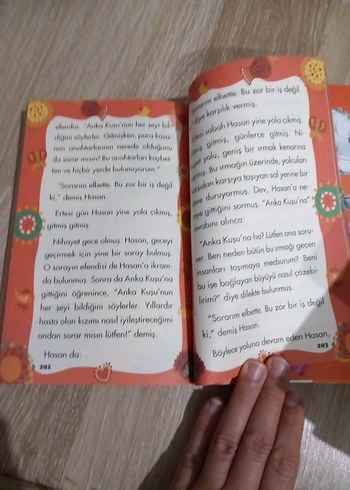 efendisi. "Anka Kuşu'nun her şeyi bil-
diğini söylerler. Gitmişken, para kasa-
mın anahtarlarının nerede olduğunu
da sorar mısın? Bu anahtarları kaybet-
tim ve hiçbir yerde bulamıyorum."
"Sorarım elbette. Bu zor bir iş değil
ki," demiş Hasan.
Ertesi gün Hasan yine yola çıkmış,
gitmiş gitmiş.
Nihayet gece olmuş. Hasan, geceyi
geçirmek için yine bir saray bulmuş.
O sarayın efendisi de Hasan'a ikram-
da bulunmuş. Sonra da Anka Kuşu'na
gittiğini öğrenince, "Anka Kuşu'nun
her şeyi bildiğini söylerler. Yıllardır
hasta olan kızımı nasıl iyileştireceğimi
ondan sorar mısın lütfen!" demiş.
Hasan da:
292
"Sorarım elbette. Bu zor bir iş değil
diye karşılık vermiş.
sabah Hasan yine yola çıkmış.
gitmiş, günlerce gitmiş. Ni-
yolu, geniş bir ırmak kenarına
Bu ırmağın üzerinde, yolcuları
karşıya taşıyan sal yerine bir
duruyormuş. Dev, Hasan'a ne-
reye gittiğini sormuş. "Anka Kuşu'na"
cevabını alınca:
"Anka Kuşu'na ha? Lütfen ona soru-
ver. Ben neden bütün bu ırmağı geçen
insanları taşımaya mecburum? Beni
bu işe bağlayan büyüyü nasıl çözebi-
lirim?" diye dilekte bulunmuş.
"Sorarım elbette. Bu zor bir iş değil
ki," demiş Hasan.
Böylece yoluna devam eden Hasan,
293